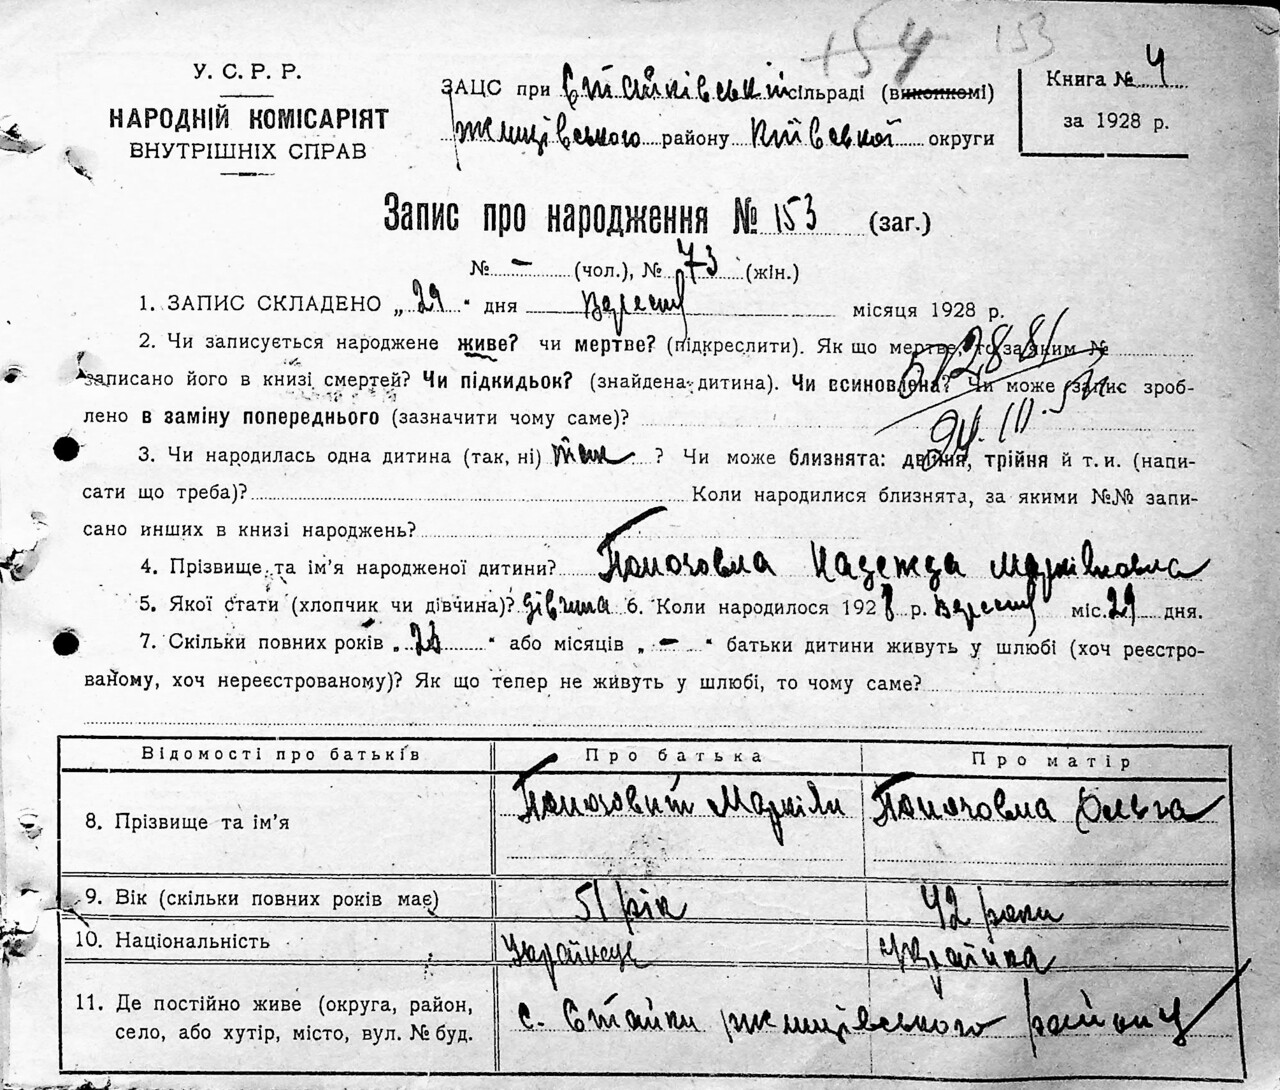 +54 153
У. С. Р. Р.
НАРОДНІЙ КОМІСАРІЯТ
ВНУТРІШНІХ СПРАВ
ЗАЦС при Стайківській сільраді (виконкомі)
Ржищівського району Київської округи
Книга № 4
за 1928 р.
Запис про народження № 153 (заг.)
№ – (чол.), № 73 (жін.)
1. ЗАПИС СКЛАДЕНО „29" дня вересня місяця 1928 р.
2. Чи записується народжене живе? чи мертве? (підкреслити). Як що мертве, то за яким №
записано його в книзі смертей? Чи підкидьок? (знайдена дитина). Чи всиновлена? Чи може запис зроб-
лено в заміну попереднього (зазначити чому саме)?
3. Чи народилась одна дитина (так, ні) так ? Чи може близнята: двійня, трійня й т. и. (напи-
сати що треба)? Коли народилися близнята, за якими №№ запи-
сано инших в книзі народжень?
4. Прізвище та ім'я народженої дитини? Надежда Марківловна
5. Якої стати (хлопчик чи дівчина)? дівчина 6. Коли народилося 1928 р. вересня міс. 29 дня.
7. Скільки повних років „ " або місяців „ – " батьки дитини живуть у шлюбі (хоч реєстро-
ваному, хоч нереєстрованому)? Як що тепер не живуть у шлюбі, то чому саме?
Відомості про батьків Про батька Про матір
8. Прізвище та ім'я Ольга
9. Вік (скільки повних років має) 51 рік 42 роки
10. Національність Українець Українка
11. Де постійно живе (округа, район,
село, або хутір, місто, вул. № буд.
с. Стайки Ржищівського району